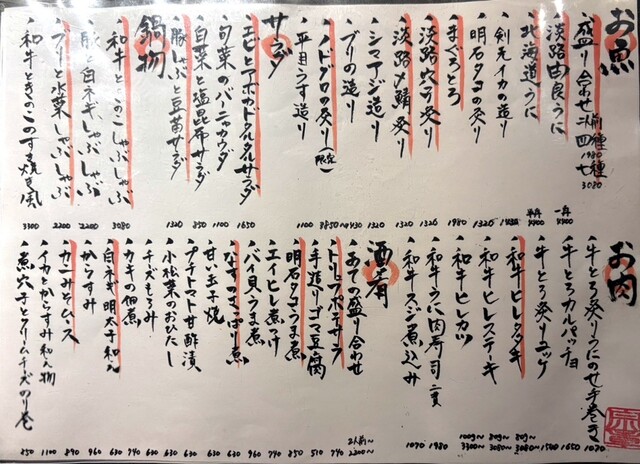 お魚
盛り合わせ二人前 四種 1980 七種 3080
淡路由良うに 一舟 4400
北海道うに 半舟 4400
剣先イカの造り 1430
明石タコの炙り 1320
まぐろとろ 1980
淡路穴子炙り 1320
淡路〆鯖炙り 1320
シマアジ造り 1320
ブリの造り
ノドグロの炙り(限定) 3850
平目うす造り 1100
サラダ
エビとアボカドタルタルサラダ 1650
旬菜のバーニャカウダ 1100
白菜と塩昆布サラダ 850
豚しゃぶと豆苗サラダ 1320
鍋物
和牛ときのこのしゃぶしゃぶ 3080
豚と白ネギしゃぶしゃぶ 2200
ブリと水菜しゃぶしゃぶ 2200
和牛ときのこのすき焼き風 3300
お肉
牛とろ炙りうにのせ手巻き 1080
牛とろカルパッチョ 1650
牛とろ炙りユッケ 1500
和牛ヒレタタキ 80g〜 3080〜
和牛ヒレステーキ 80g〜 3080〜
和牛ヒレカツ 100g〜 3300〜
和牛うに肉寿司二貫 1980
和牛スジ煮込み 1070
酒肴
あての盛り合わせ 二人前〜 2200〜
トリュフポテサラ 740
手造りゴマ豆腐 510
明石タコうま煮 850
エイヒレ煮つけ 740
バイ貝うま煮 960
なすのさっぱり煮 630
甘い玉子焼 630
プチトマト甘酢漬 630
小松菜のおひたし 630
チーズもろみ 740
カキの佃煮 630
白ネギ明太子和え 630
からすみ 960
カニみそムース 890
イカとからすみ和え物 1100
煮穴子とクリームチーズのり巻 850